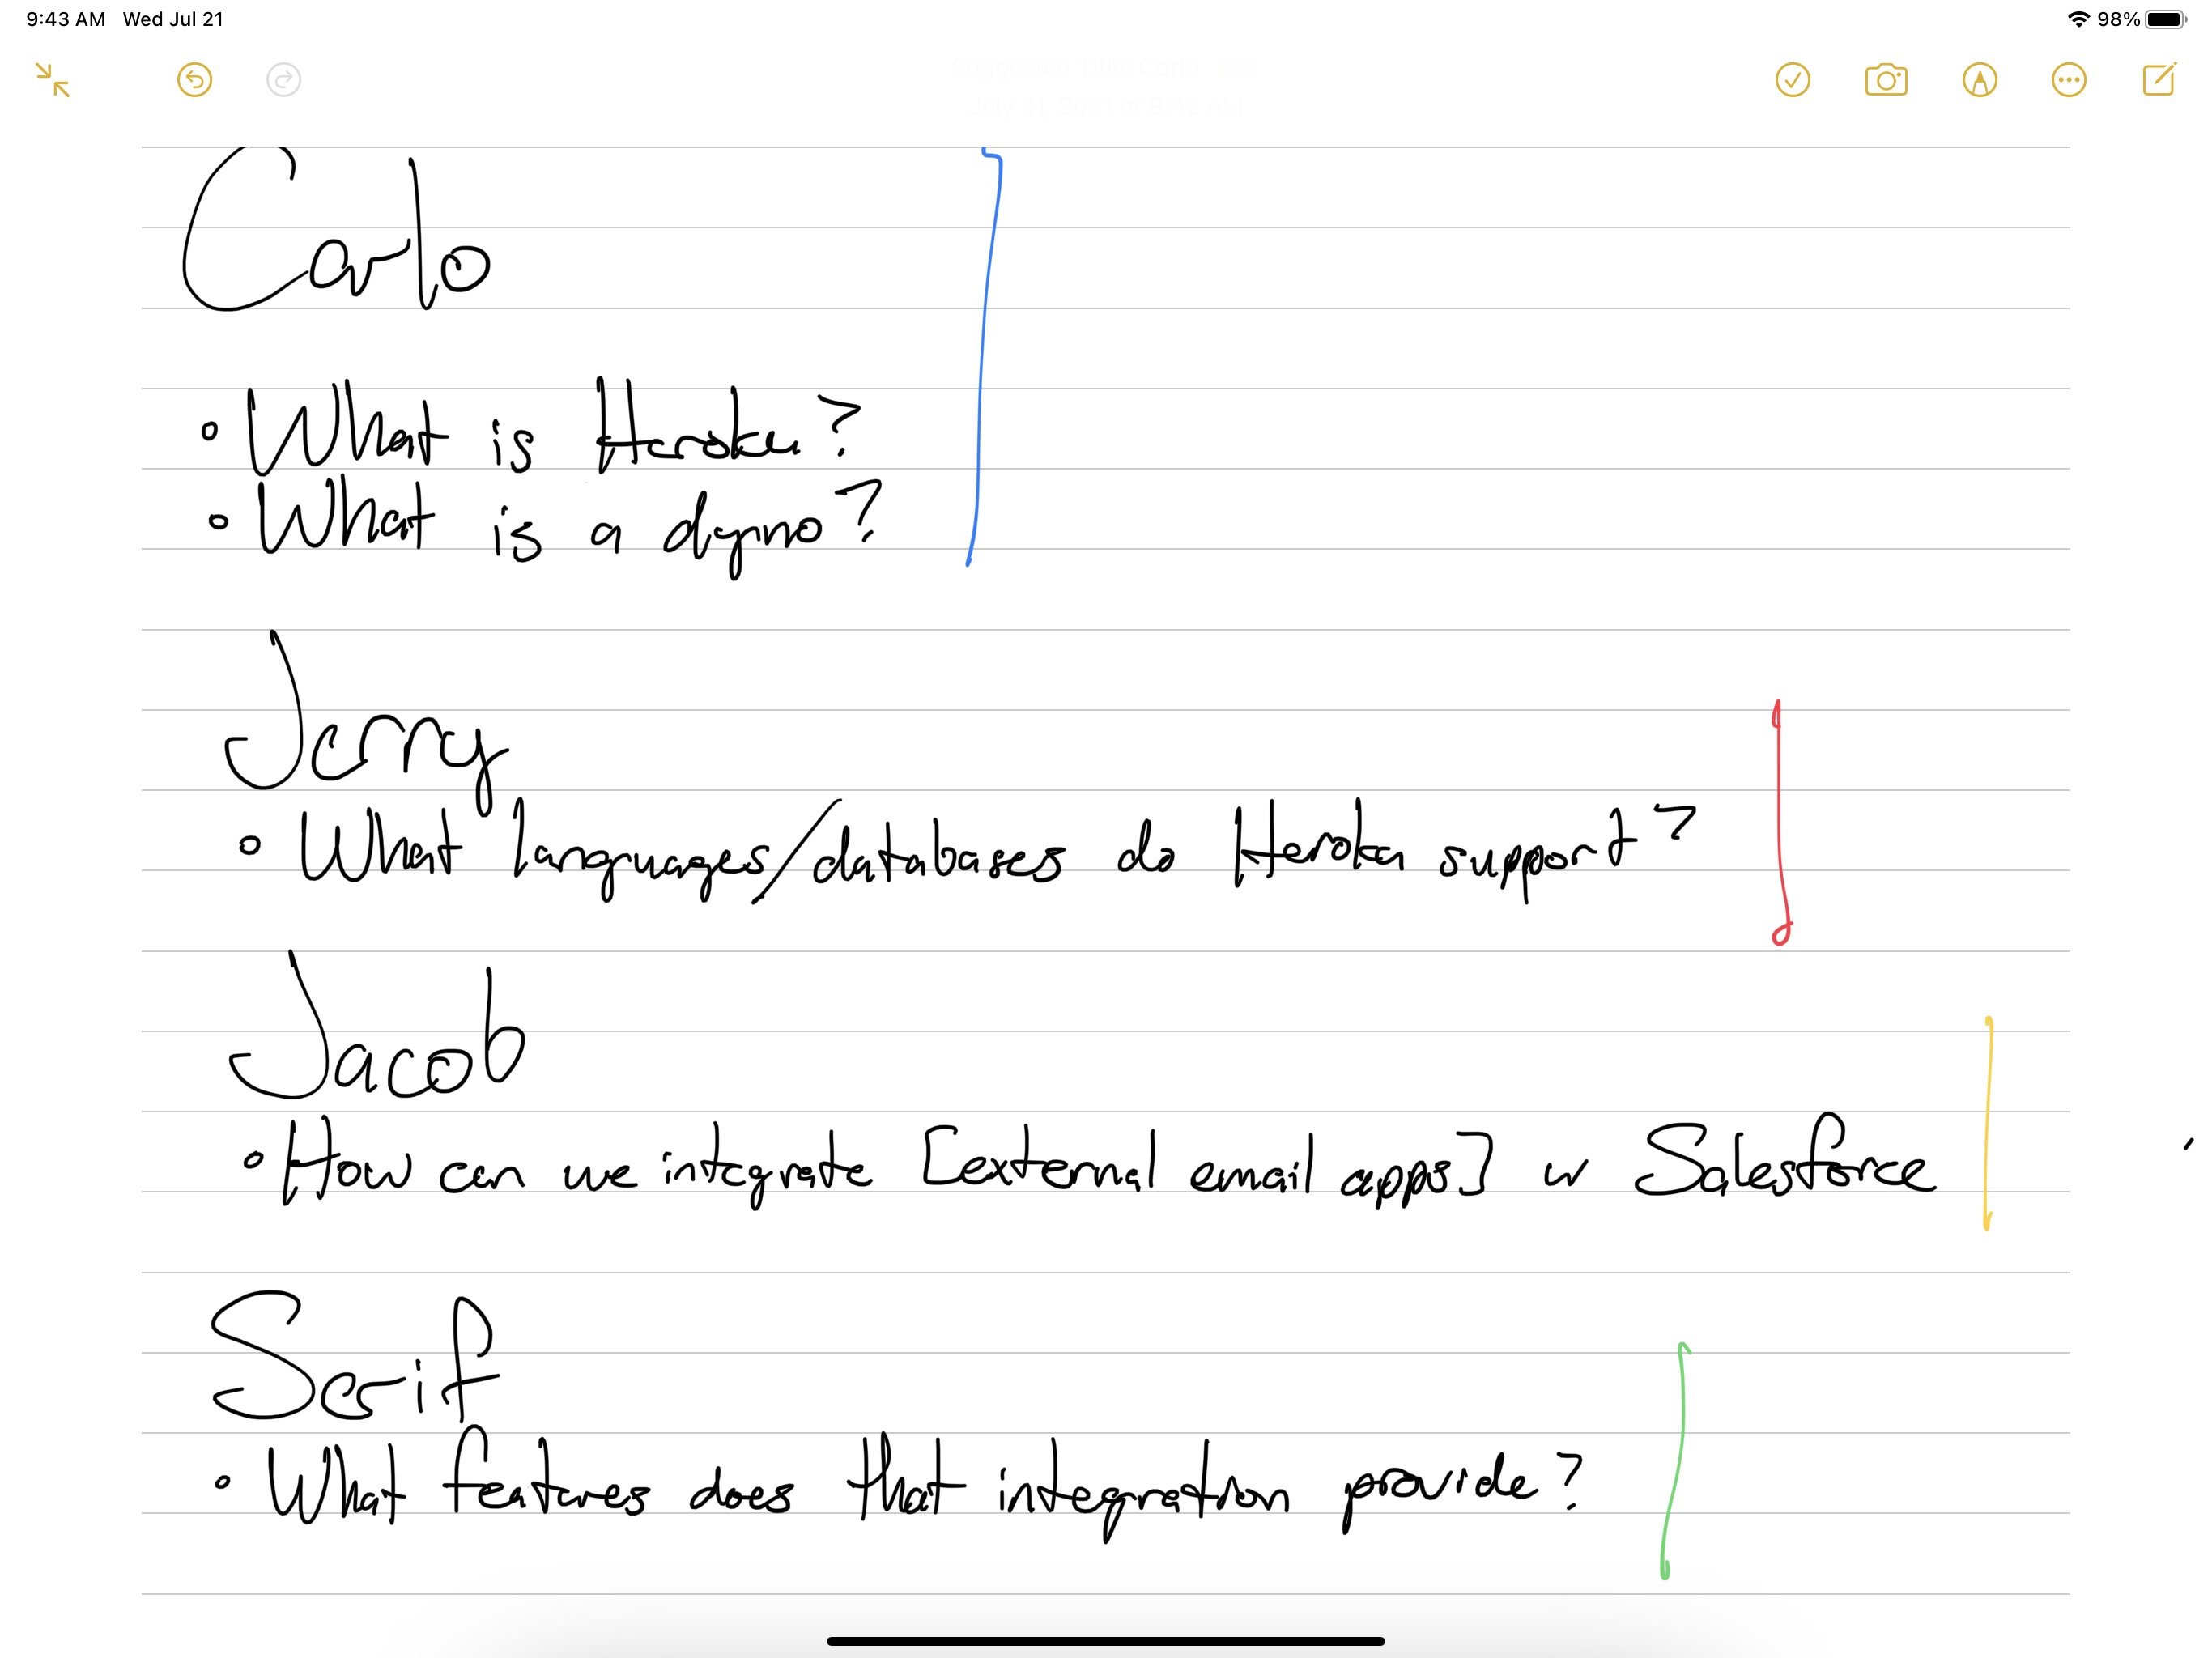 9:43 AM Wed Jul 21
98%
Suggested Title: Carlo Edit
July 21, 2021 at 9:42 AM
Carlo
• What is Heroku?
• What is a dyno?
Jerry
• What languages/databases do Heroku support?
Jacob
• How can we integrate [external email apps] w Salesforce
Serif
• What features does that integration provide?